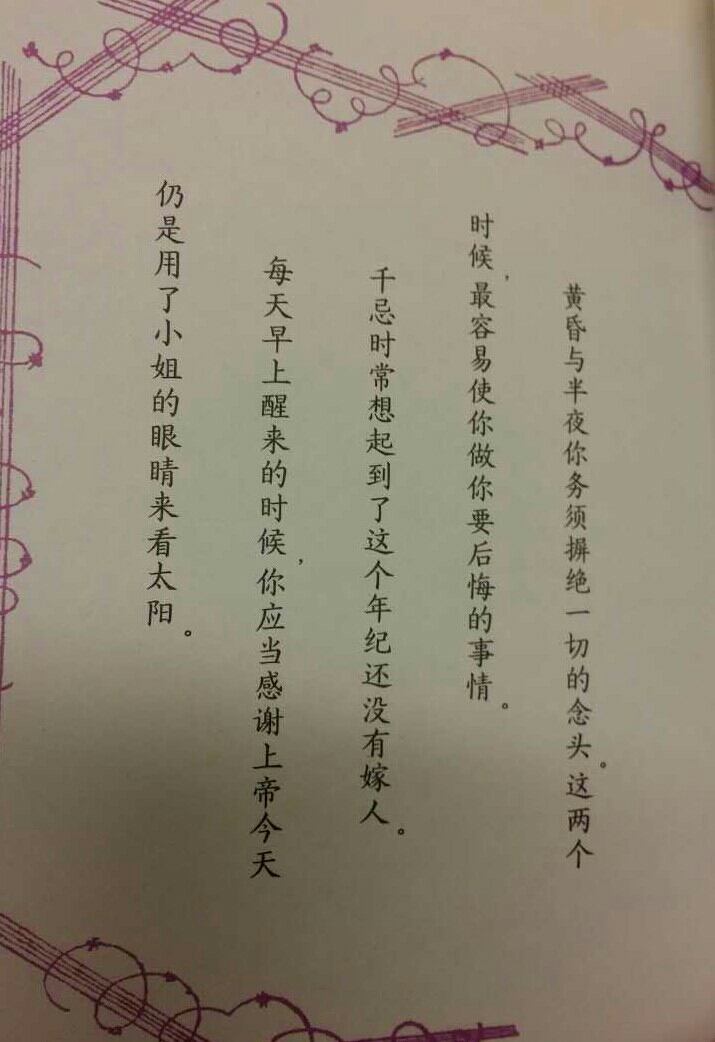 黄昏与半夜你务须摒绝一切的念头。这两个
时候，最容易使你做你要后悔的事情。
千忌时常想起到了这个年纪还没有嫁人。
每天早上醒来的时候，你应当感谢上帝今天
仍是用了小姐的眼睛来看太阳。